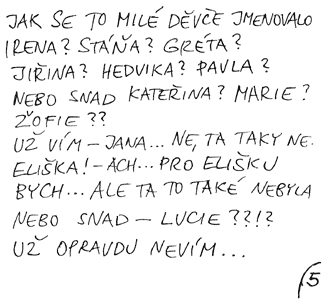 JAK SE TO MILÉ DĚVČE JMENOVALO
IRENA? STÁŇA? GRÉTA?
JIŘINA? HEDVIKA? PAVLA?
NEBO SNAD KATEŘINA? MARIE?
ŽOFIE ??
UŽ VÍM – JANA... NE, TA TAKY NE.
ELIŠKA! – ACH... PRO ELIŠKU
BYCH... ALE TA TO TAKÉ NEBYLA
NEBO SNAD – LUCIE ??!?
UŽ OPRAVDU NEVÍM...
5